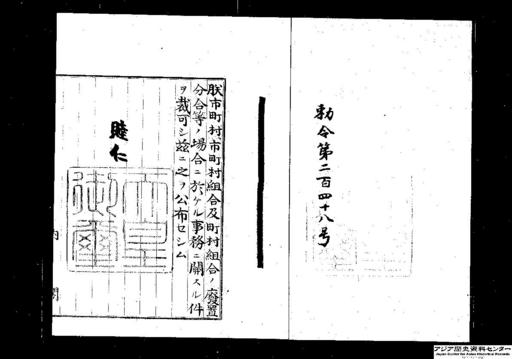 勅令第二百四十八号
朕市町村市町村組合及町村組合ノ廢置
分合等ノ場合ニ於ケル事務ニ關スル件
ヲ裁可シ玆ニ之ヲ公布セシム
睦仁
天皇
御璽
内
閣
アジア歴史資料センター
Japan Center for Asian Historical Records